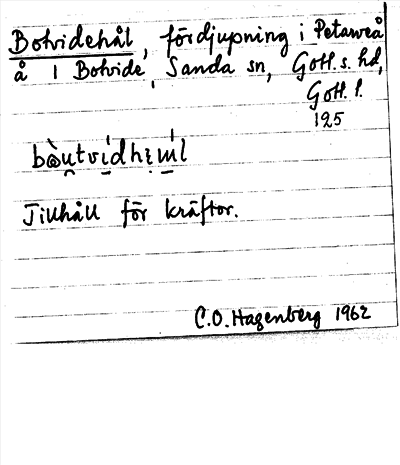 Botvidehål, fördjupning i Petarveå
å i Botvide, Sanda sn, Gotl. s. hd,
Gotl. l.
195
Tillhåll för kräftor.
C.O. Hagenberg 1962